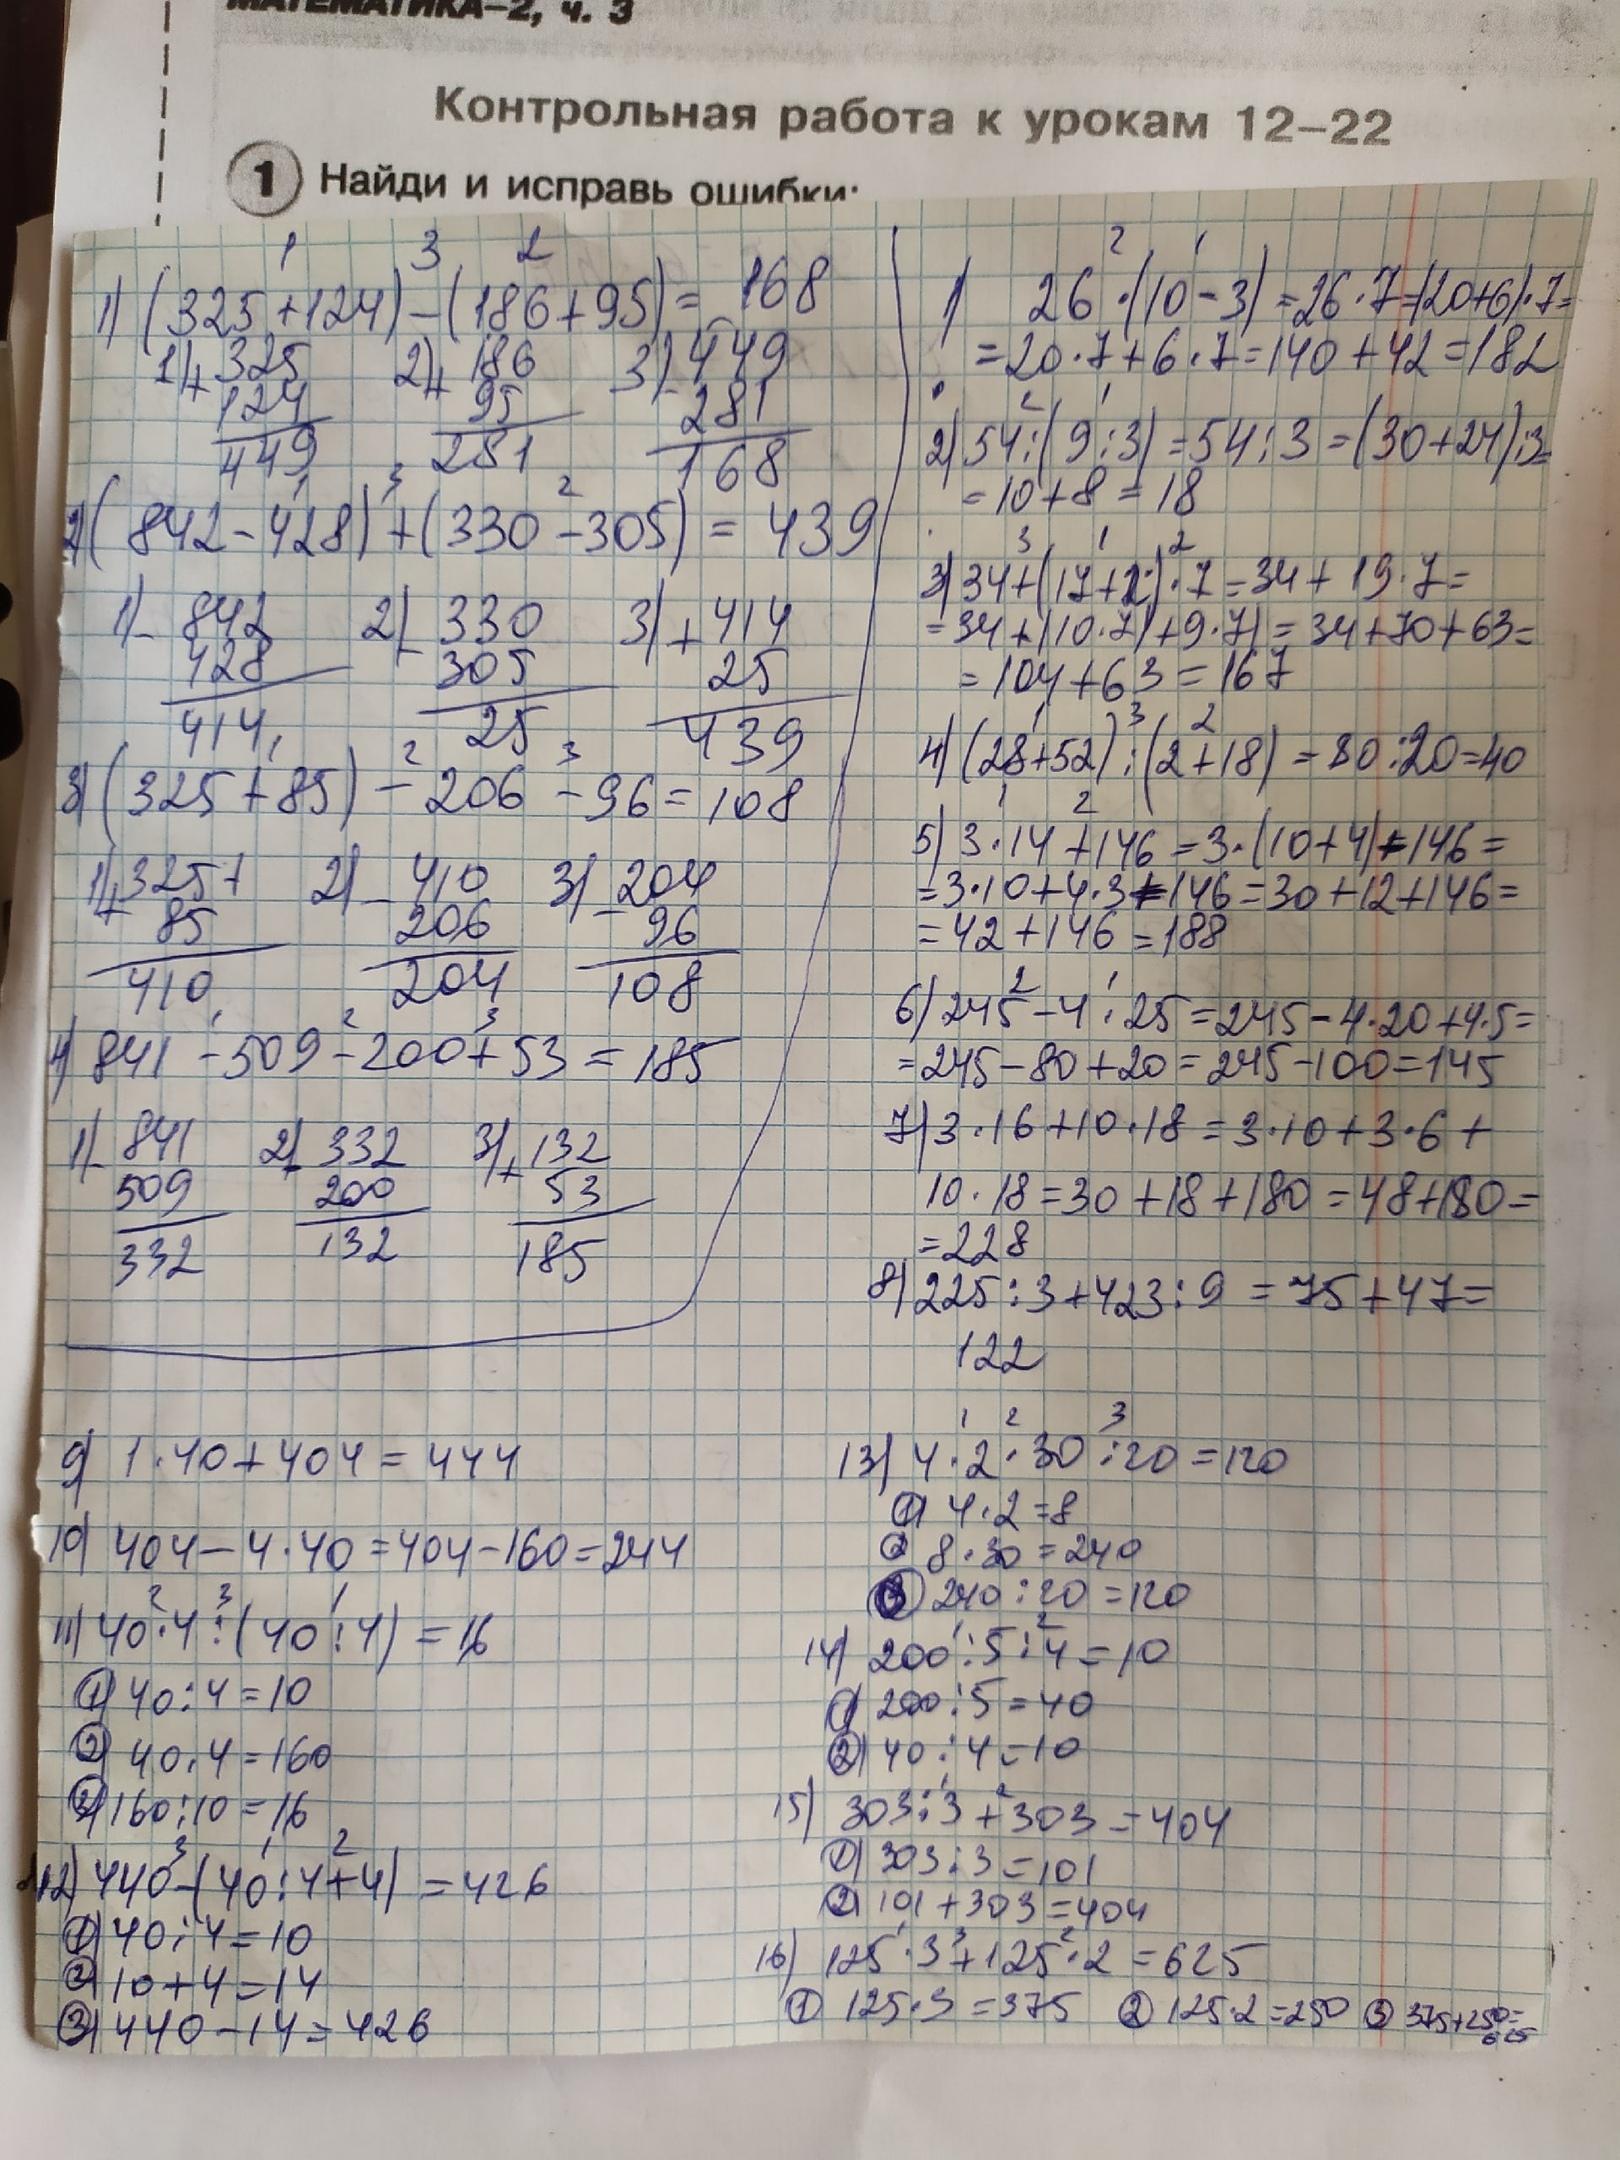 МАТЕМАТИКА–2, ч. 3
Контрольная работа к урокам 12–22
1 Найди и исправь ошибки:
1 3 2
1) (325+124)-(186+95)= 168
1) + 325 2) + 186 3) - 449
124 95 281
449 281 168
1 3 2
2) (842-428)+(330-305) = 439
1) - 842 2) - 330 3) + 414
428 305 25
414 25 439
1 2 3
3) (325+85)-206-96=108
1) + 325 2) - 410 3) - 204
85 206 96
410 204 108
1 2 3
4) 841-509-200+53=185
1) - 841 2) - 332 3) + 132
509 200 53
332 132 185
2 1
1) 26·(10-3)=26·7=(20+6)·7=
=20·7+6·7=140+42=182
2 1
2) 54:(9:3)=54:3=(30+24):3=
=10+8=18
3 1 2
3) 34+(17+2)·7=34+19·7=
=34+(10·7)+9·7)=34+70+63=
=104+63=167
1 3 2
4) (28+52):(2+18)=80:20=40
1 2
5) 3·14+146=3·(10+4)+146=
=3·10+4·3+146=30+12+146=
=42+146=188
2 1
6) 245-4:25=245-4·20+4·5=
=245-80+20=245-100=145
7) 3·16+10·18=3·10+3·6+
10·18=30+18+180=48+180=
=228
8) 225:3+423:9=75+47=
122
9) 1·40+404=444
10) 404-4·40=404-160=244
2 3 1
11) 40·4:(40:4)=16
1) 40:4=10
2) 40·4=160
3) 160:10=16
3 1 2
12) 440-(40:4+4)=426
1) 40:4=10
2) 10+4=14
3) 440-14=426
1 2 3
13) 4·2·30:20=120
1) 4·2=8
2 8·30=240
3 240:20=120
1 2
14) 200:5:4=10
1) 200:5=40
2) 40:4=10
1 2
15) 303:3+303=404
1) 303:3=101
2) 101+303=404
1 3 2
16) 125·3+125·2=625
1 125·3=375 2 125·2=250 3 375+250=
625